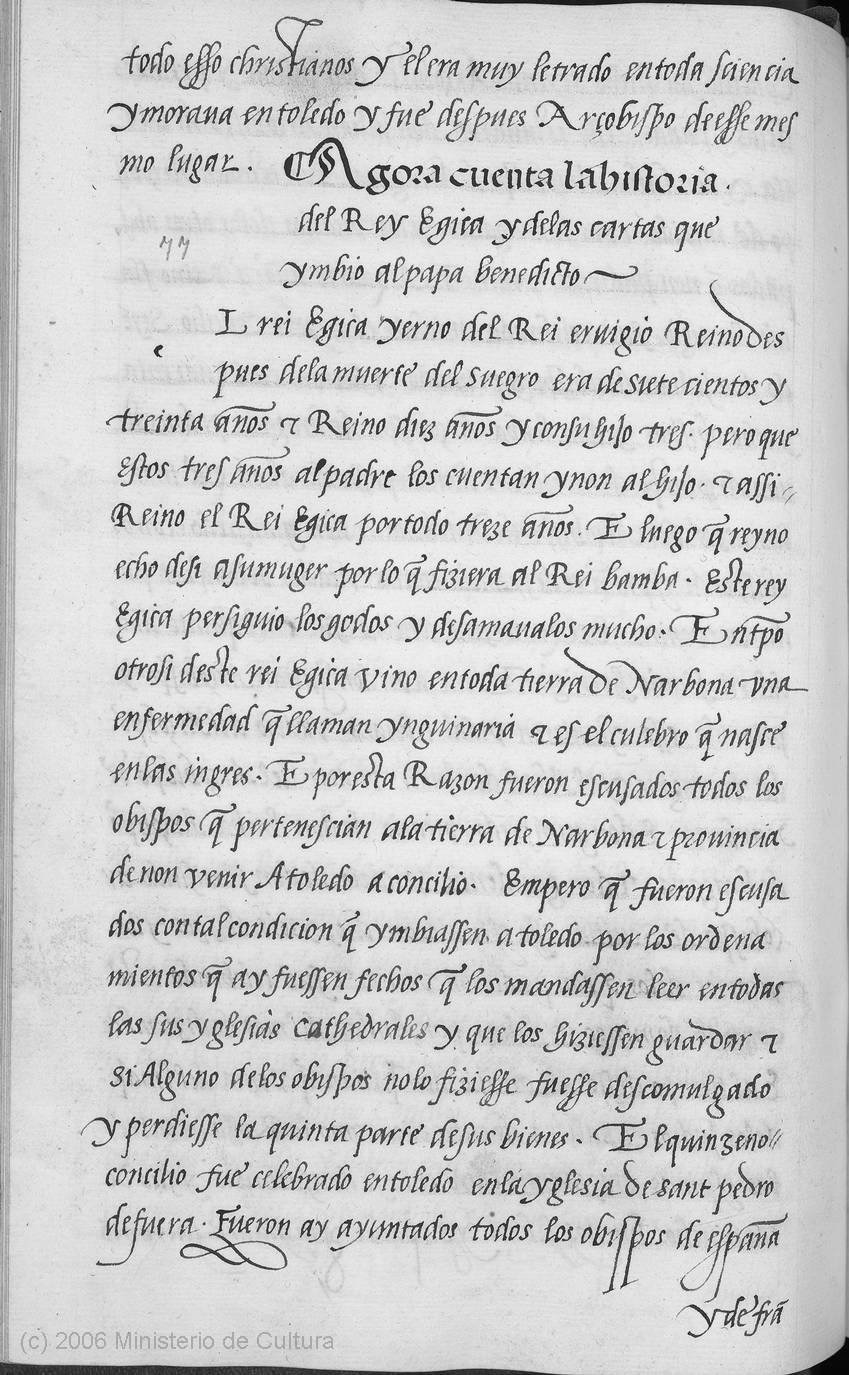 todo esso christianos y el era muy letrado en toda sciencia
y morava en toledo y fue despues Arçobispo de esse mes
mo lugar. Agora cuenta la historia.
del Rey Egica y delas cartas que
77
ymbio al papa benedicto
e
L rei Egica yerno del Rei ervigio Reino des
pues dela muerte del suegro era de siete cientos y
treinta años & Reino diez años y con su hijo tres. pero que
estos tres años al padre los cuentan y non al hijo. & assi
Reino el Rei Egica por todo treze años. E luego q̃ reyno
echo de si a su muger por lo q̃ fiziera al Rei bamba. Este rey
Egica persiguio los godos y desamaualos mucho. E nt̃po
otrosi deste rei Egica vino en toda tierra de Narbona vna
enfermedad q̃ llaman ynguinaria & es el culebro q̃ nasce
enlas ingres. E por esta Razon fueron escusados todos los
obispos q̃ pertenescian ala tierra de Narbona & provincia
de non venir A toledo a concilio. Empero q̃ fueron escusa
dos con tal condicion q̃ ymbiassen a toledo por los ordena
mientos q̃ ay fuessen fechos q̃ los mandassen leer en todas
las sus yglesias cathedrales y que los hiziessen guardar &
si Alguno delos obispos no lo fiziesse fuesse descomulgado
y perdiesse la quinta parte de sus bienes. El quinzeno
concilio fue celebrado en toledo en la yglesia de sant pedro
de fuera. Fueron ay ayuntados todos los obispos de españa
y de frã
(c) 2006 Ministerio de Cultura